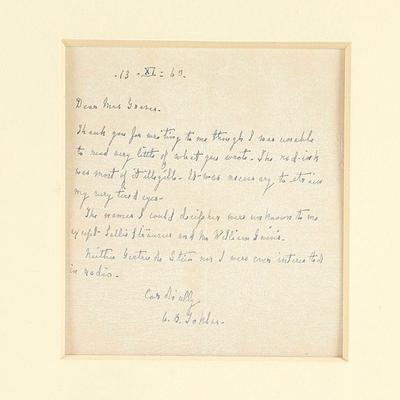 .13 - XI - 60.
Dear Mrs
Thank you for writing to me though I was unable
to read very little of what you wrote. The red-ink
was most of it illegible. It was necessary to strain
my very tired eyes.
The names I could decipher were unknown to me
except and Mr William
Neither Gertrude Stein nor I were ever interested
in radio.
Cordially
A. B. Toklas.